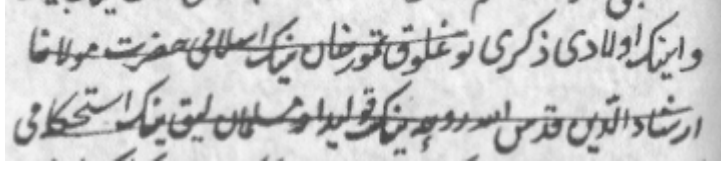 و انینک اولادی ذکری توغلوق تمور خان نینک اسلامی حضرت مولانا
ارشاد الدین قدس الله روحه نینک قولیدا و مسلمان لیق نینک استحکامی